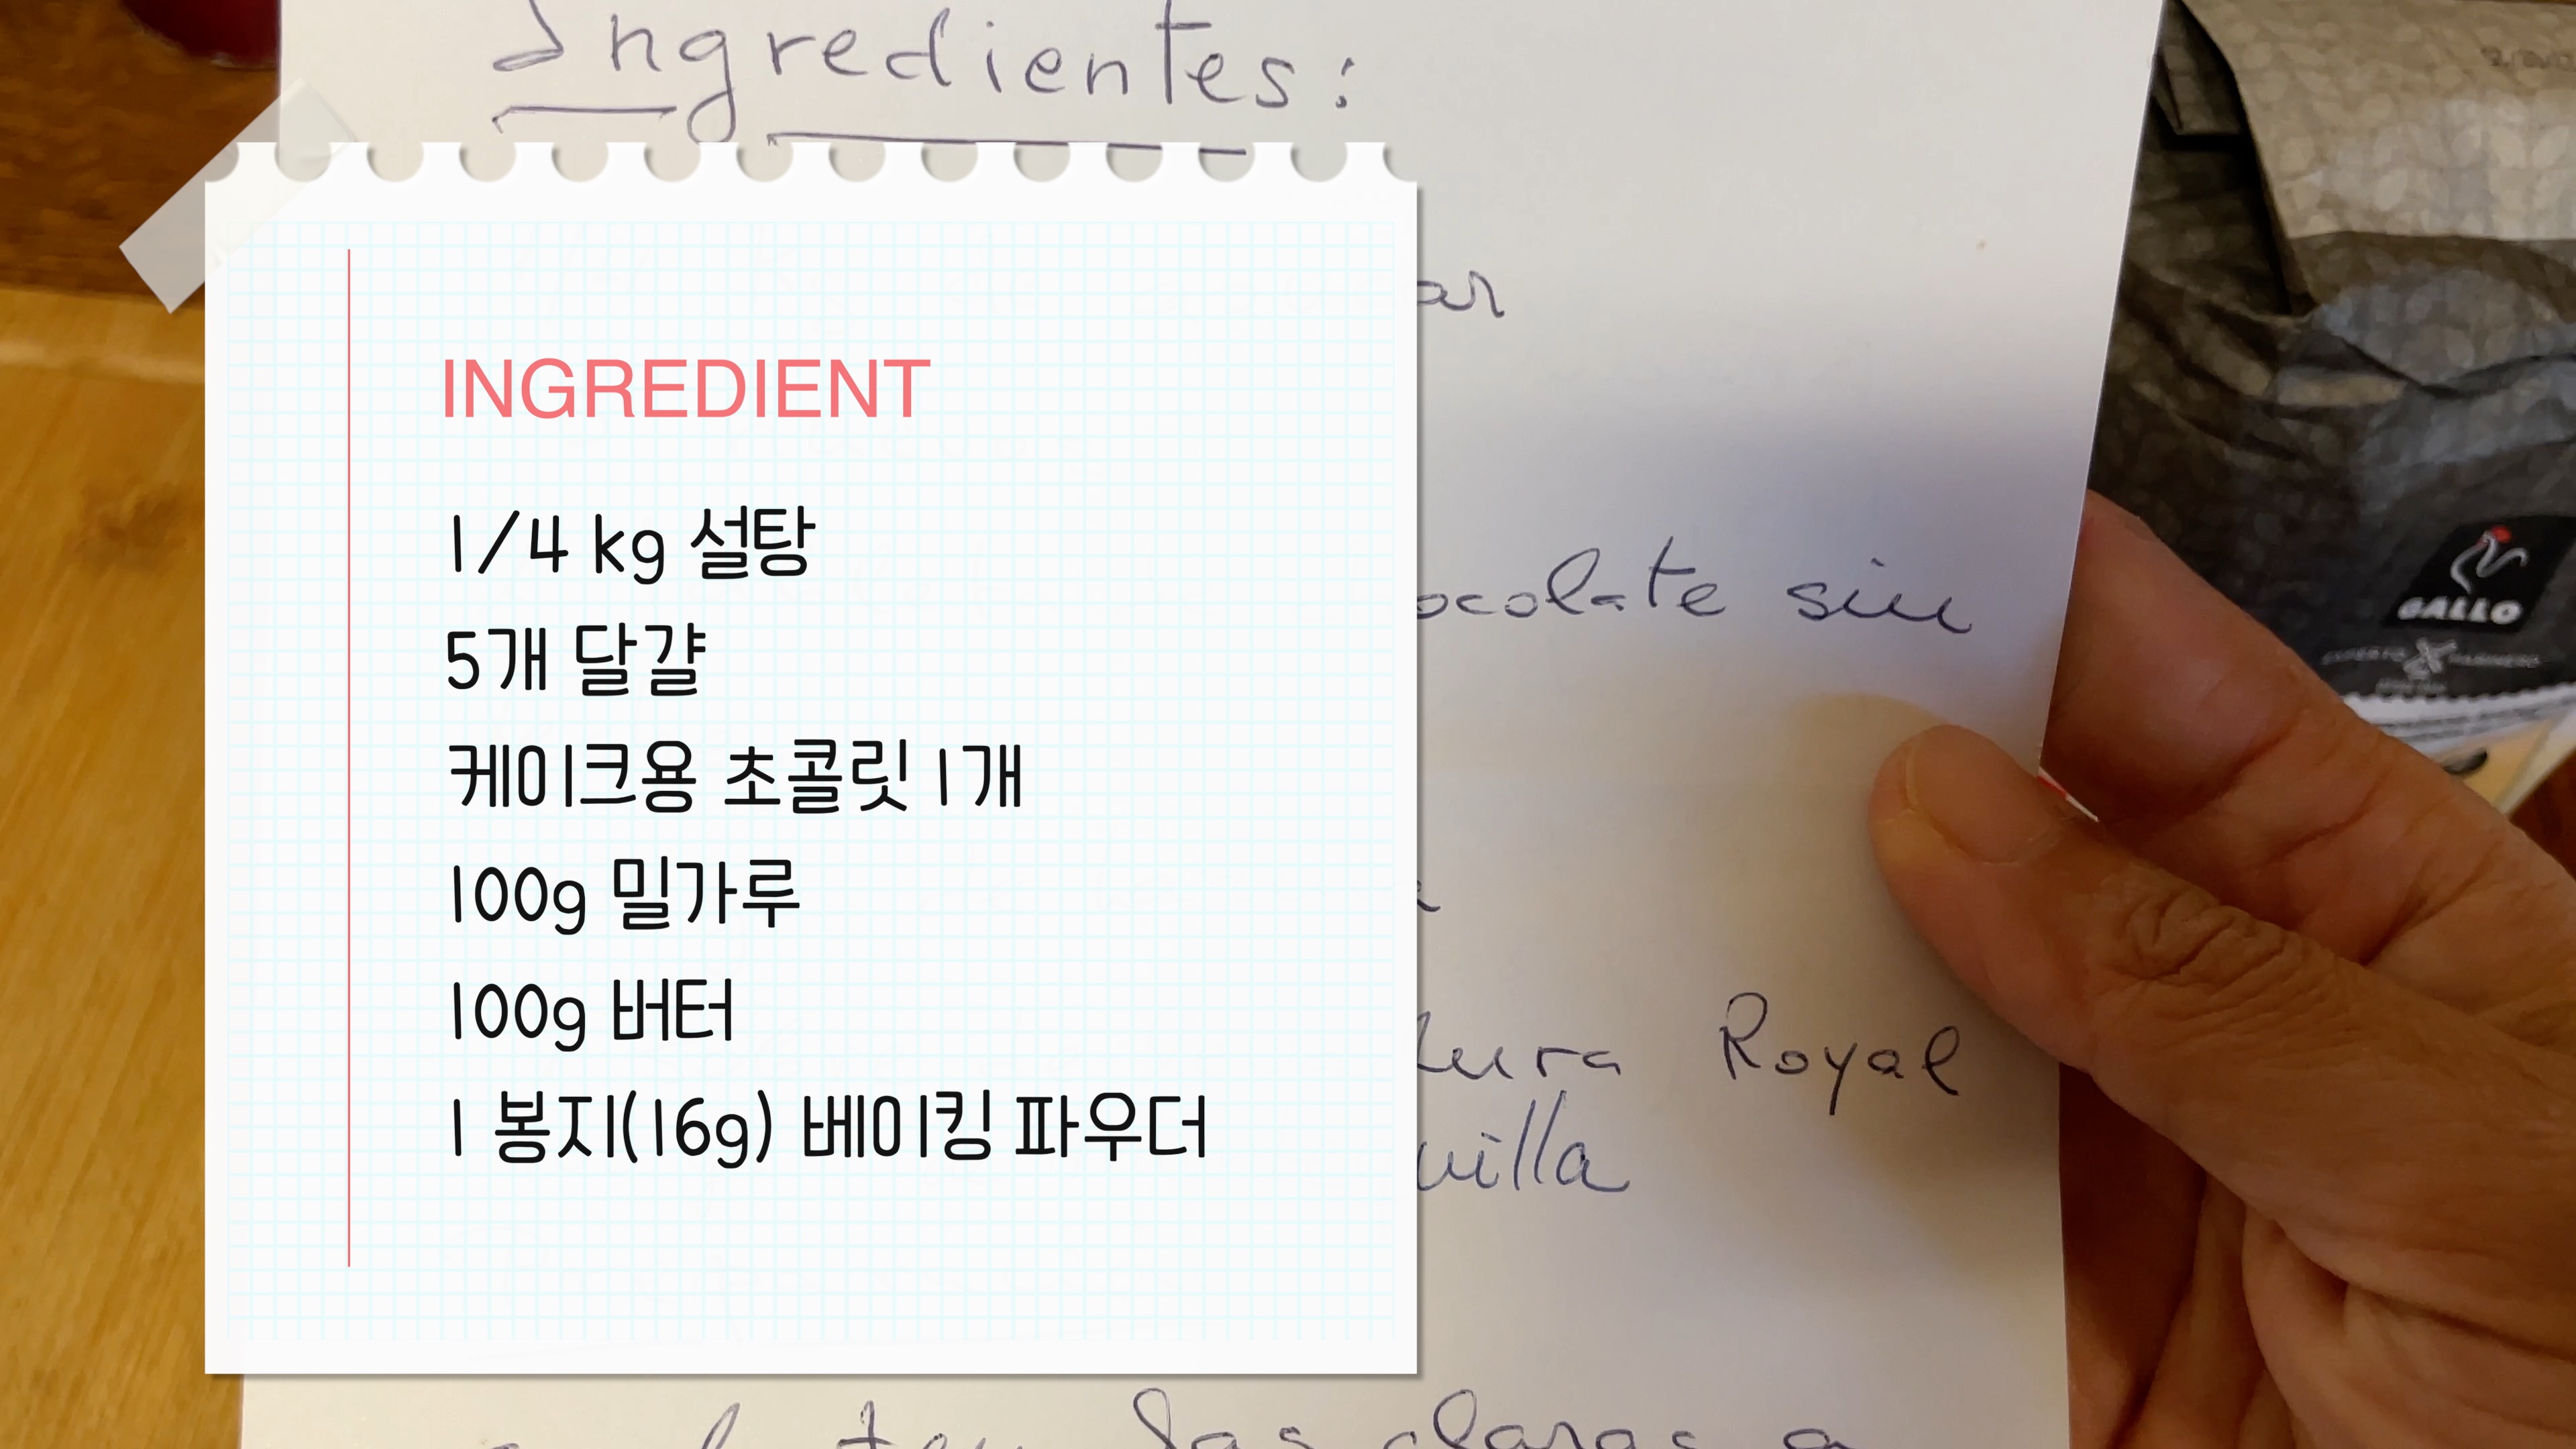 Ingredientes:
INGREDIENT
1/4 kg 설탕
5개 달걀
케이크용 초콜릿 1개
100g 밀가루
100g 버터
1 봉지(16g) 베이킹 파우더
ar
ocolate sin
dura Royal
uilla
las claras a
GALLO